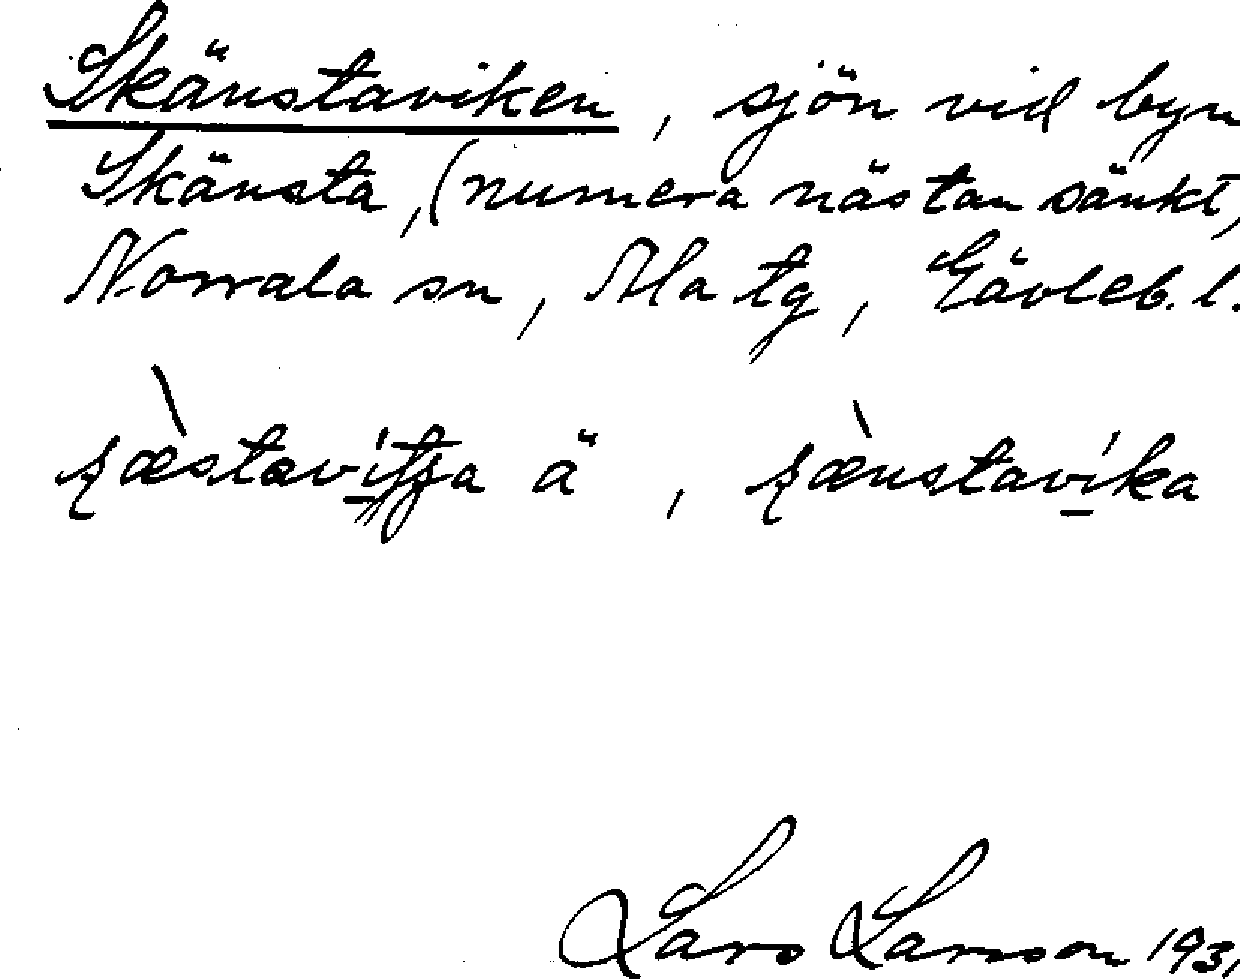 Skänstaviken, sjön vid byn
Skänsta, (numera nästan sänkt,
Norrala sn, Ala tg, Gävleb. l.
ä
Lars Larsson 193